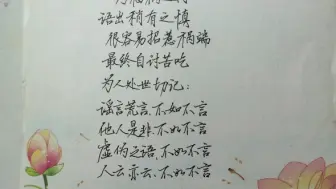 语出稍有之慎
很容易招惹祸端
最终自讨苦吃
为人处世切记:
谣言荒言、不如不言
他人是非、不如不言
虚伪之语、不如不言
人云亦云、不如不言